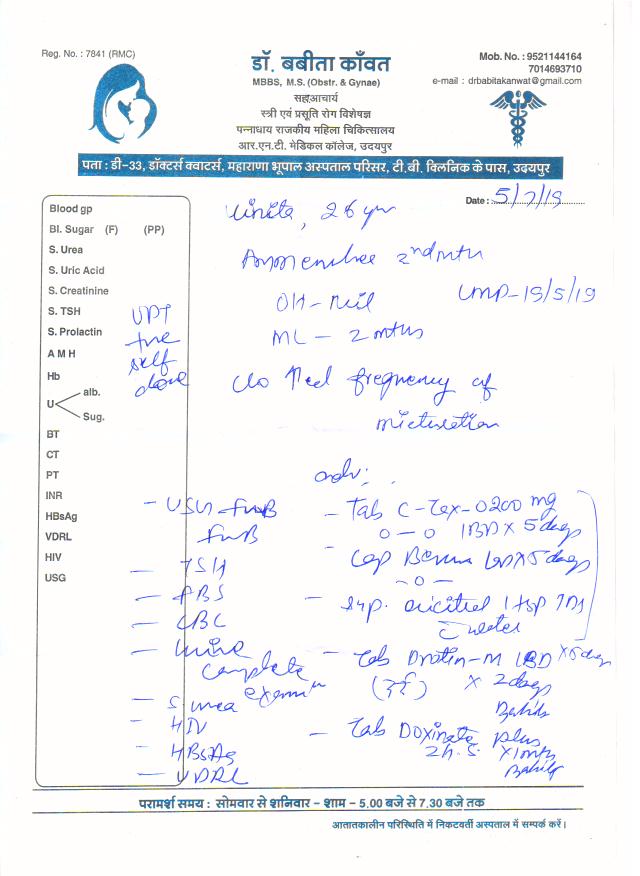 Reg. No. : 7841 (RMC)
डॉ. बबीता काँवत
MBBS, M.S. (Obstr. & Gynae)
सहआचार्य
स्त्री एवं प्रसूति रोग विशेषज्ञ
पन्नाधाय राजकीय महिला चिकित्सालय
आर.एन.टी. मेडिकल कॉलेज, उदयपुर
Mob. No. : 9521144164
7014693710
e-mail : drbabitakanwat@gmail.com
पता : डी-33, डॉक्टर्स क्वाटर्स, महाराणा भूपाल अस्पताल परिसर, टी.बी. क्लिनिक के पास, उदयपुर
Date : 5/7/19
Blood gp
Bl. Sugar (F) (PP)
S. Urea
S. Uric Acid
S. Creatinine
S. TSH
S. Prolactin
A M H
Hb
U alb.
Sug.
BT
CT
PT
INR
HBsAg
VDRL
HIV
USG
UPT
+ve
self
done
26 yr
2nd mth
OH - Nil LMP - 19/5/19
ML - 2 mths
c/o ↑ed frequency of
micturition
adv:
- USG - FWB
FWB
- TSH
- FBS
- CBC
- Urine
complete
- S urea
- HIV
- HBsAg
- VDRL
- Tab C-Tax-O 200 mg
0-0 1BD x 5 days
- Cap x 5 days
-0-
- Syp. 1 tsp TDS
c water
- Tab Drotin-M 1BD x 5 days
x 2 days
- Tab Doxinate plus
2 h.s. x 1 mth
परामर्श समय : सोमवार से शनिवार - शाम - 5.00 बजे से 7.30 बजे तक
आतातकालीन परिस्थिति में निकटवर्ती अस्पताल में सम्पर्क करें।